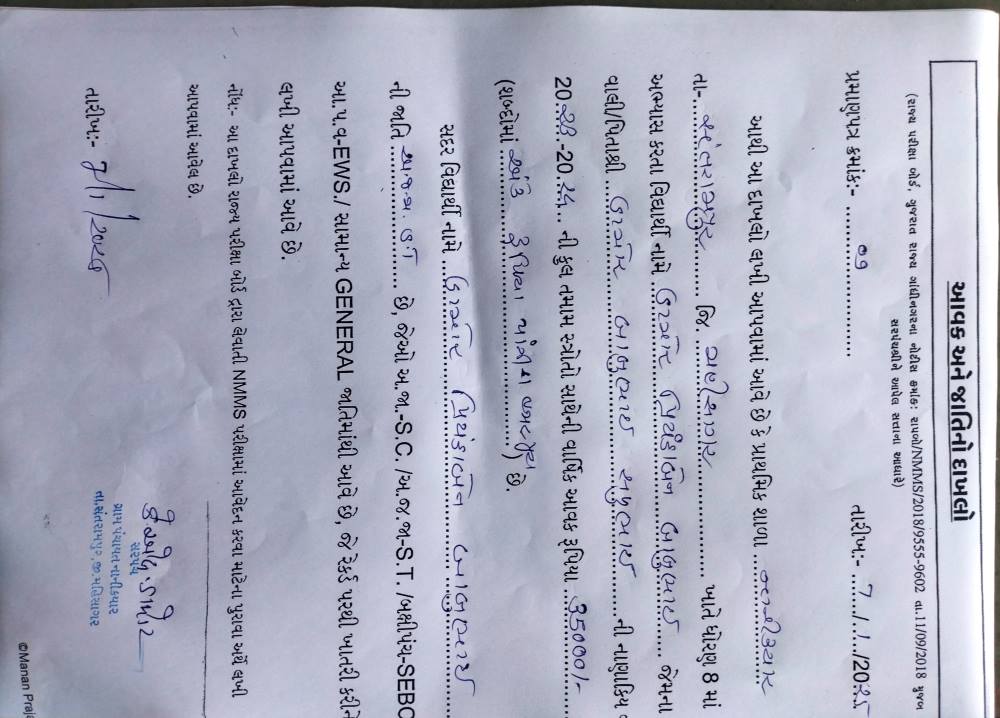 આવક અને જાતિનો દાખલો
(રાજ્ય પરીક્ષા બોર્ડ, ગુજરાત રાજ્ય ગાંધીનગરના નોટીસ ક્રમાંક: રાપબો/NMMS/2018/9555-9602 તા.11/09/2018 મુજબ
સરપંચશ્રીને આપેલ સત્તાના આધારે)
પ્રમાણપત્ર ક્રમાંક:- ........૦૭.............. તારીખ:- ...7.../.1.../2025
આથી આ દાખલો લખી આપવામાં આવે છે કે પ્રાથમિક શાળા ..નાનીક્યાર
તા-...સંતરામપુર....... જિ. મહીસાગર.............. ખાતે ધોરણ 8 માં
અભ્યાસ કરતા વિદ્યાર્થી નામે ..ડામોર પ્રિયંકાબેન બાબુભાઈ.... જેમના
વાલી/પિતાશ્રી ...ડામોર બાબુભાઈ સમુભાઈ..... ની નાણાકિય
20.23.-20.24.. ની કુલ તમામ સ્ત્રોતો સાથેની વાર્ષિક આવક રૂપિયા ..35000/-
(શબ્દોમાં અંકે રૂપિયા પાંત્રીસ હજાર પુરા) છે.
સદર વિદ્યાર્થી નામે ...ડામોર પ્રિયંકાબેન બાબુભાઈ
ની જાતિ અ.જ.જા. છે, જેઓ અ.જા.-S.C. /અ.જ.જા-S.T. /બક્ષીપંચ-SEBC
આ.પ.વ-EWS./ સામાન્ય GENERAL જાતિમાંથી આવે છે, જે રેકર્ડ પરથી ખાતરી કરીને
લખી આપવામાં આવે છે.
નોંધ:- આ દાખલો રાજ્ય પરીક્ષા બોર્ડ દ્વારા લેવાતી NMMS પરીક્ષામાં આવેદન કરવા માટેના પુરાવા અર્થે લખી
આપવામાં આવેલ છે.
તારીખ:- 7/1/2025
સરપંચ
ગ્રામ પંચાયત નાનીક્યાર
તા.સંતરામપુર, જી.મહિસાગર
©Manan Praj